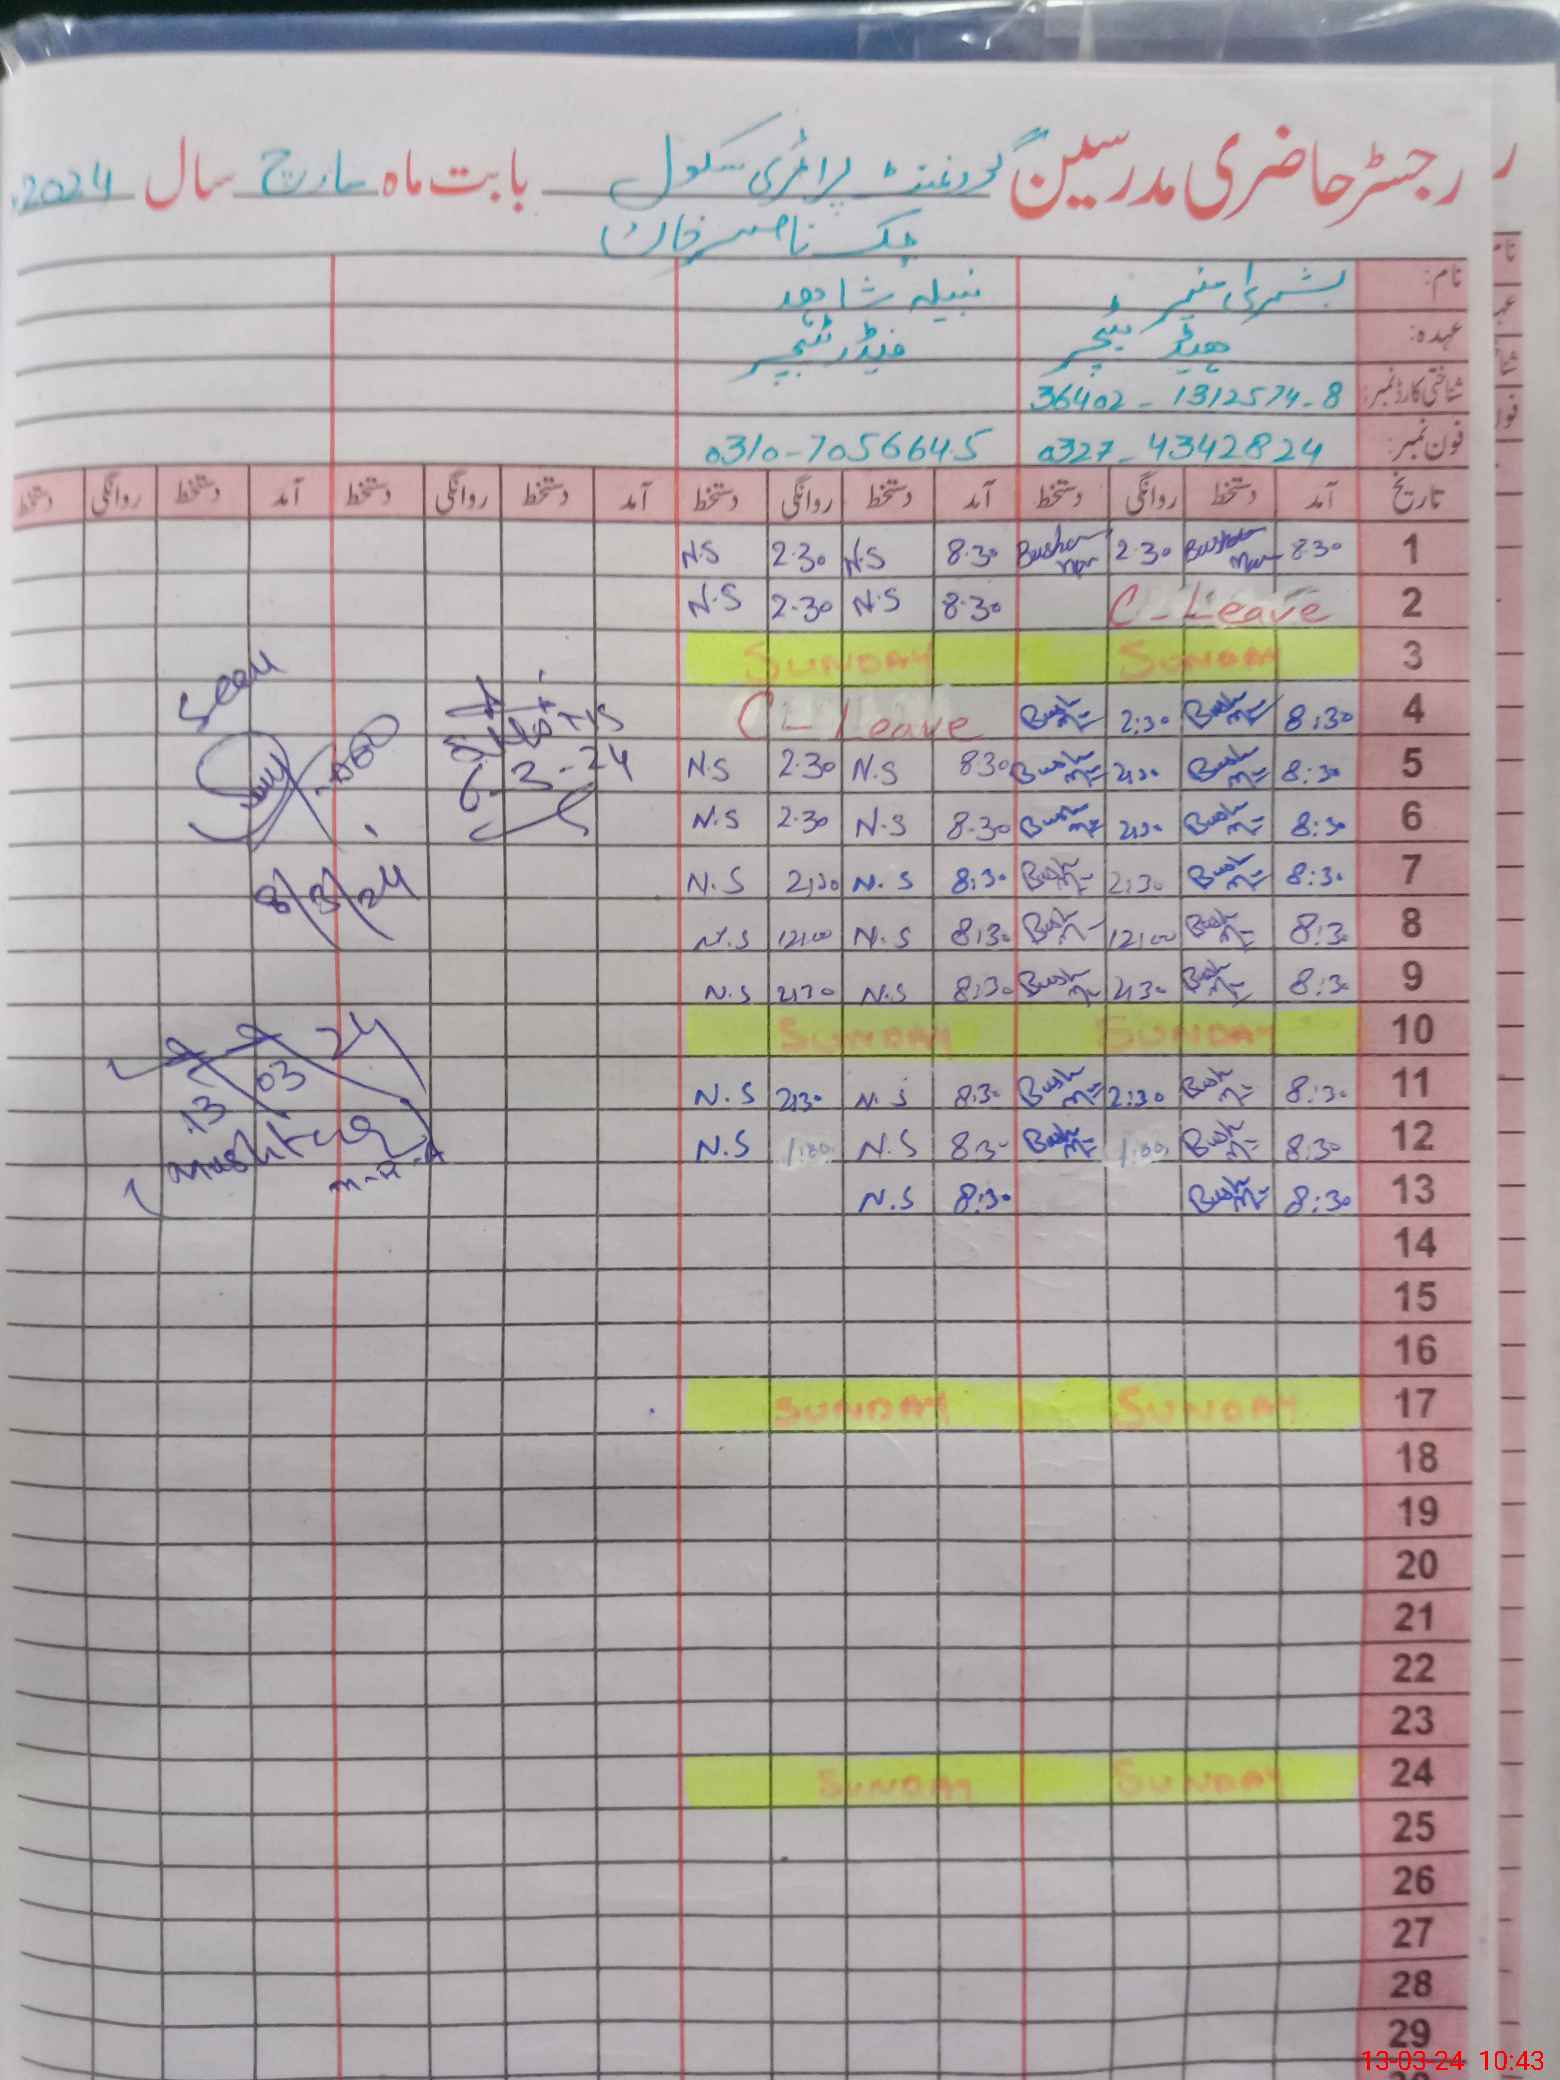 رجسٹر حاضری مدرسین گورنمنٹ پرائمری سکول بابت ماہ مارچ سال 2024
چک ناصر خان
نام: بشری منیر نبیلہ شاہد
عہدہ: ہیڈ ٹیچر فیڈر ٹیچر
شناختی کارڈ نمبر: 36402-1312574-8
فون نمبر: 0327-4342824 0310-7056645
تاریخ آمد دستخط روانگی دستخط آمد دستخط روانگی دستخط آمد دستخط روانگی دستخط آمد دستخط روانگی دستخط
1 8.30 Bushra 2.30 Bushra 8.30 N.S 2.30 N.S
2 C-Leave 8.30 N.S 2.30 N.S
3 SUNDAY SUNDAY
4 8:30 Bush 2:30 Bush C-Leave
5 8:30 Bush 2:30 Bush 8.30 N.S 2.30 N.S
6 8:30 Bush 2:30 Bush 8.30 N.S 2.30 N.S
7 8:30 Bush 2:30 Bush 8:30 N.S 2:30 N.S
8 8:30 Bush 12:00 Bush 8:30 N.S 12:00 N.S
9 8:30 Bush 2:30 Bush 8:30 N.S 2:30 N.S
10 SUNDAY SUNDAY
11 8:30 Bush 2:30 Bush 8:30 N.S 2:30 N.S
12 8:30 Bush 1:00 Bush 8:30 N.S 1:00 N.S
13 8:30 Bush 8:30 N.S
14
15
16
17 SUNDAY SUNDAY
18
19
20
21
22
23
24 SUNDAY SUNDAY
25
26
27
28
29
Seen
6-3-24
8/3/24
13 03 24
Mushtaq
M-A-A
13-03-24 10:43